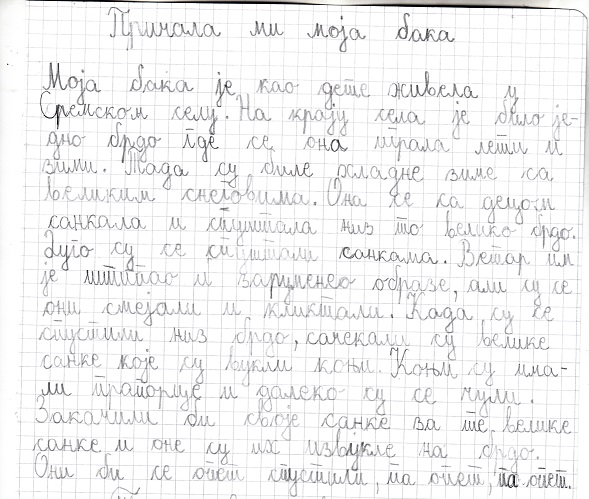 Причала ми моја бака
Моја бака је као дете живела у
Сремском селу. На крају села је било је-
дно брдо где се она играла лети и
зими. Тада су биле хладне зиме са
великим снеговима. Она се са децом
санкала и спуштала низ то велико брдо.
Дуго су се спуштали санкама. Ветар им
је штипао и заруменео образе, али су се
они смејали и кликтали. Када су се
спустили низ брдо, сачекали су велике
санке које су вукли коњи. Коњи су има-
ли прапорце и далеко су се чули.
Закачили би своје санке за те велике
санке и оне су их извукле на брдо.
Они би се опет спустили, па опет, па опет.